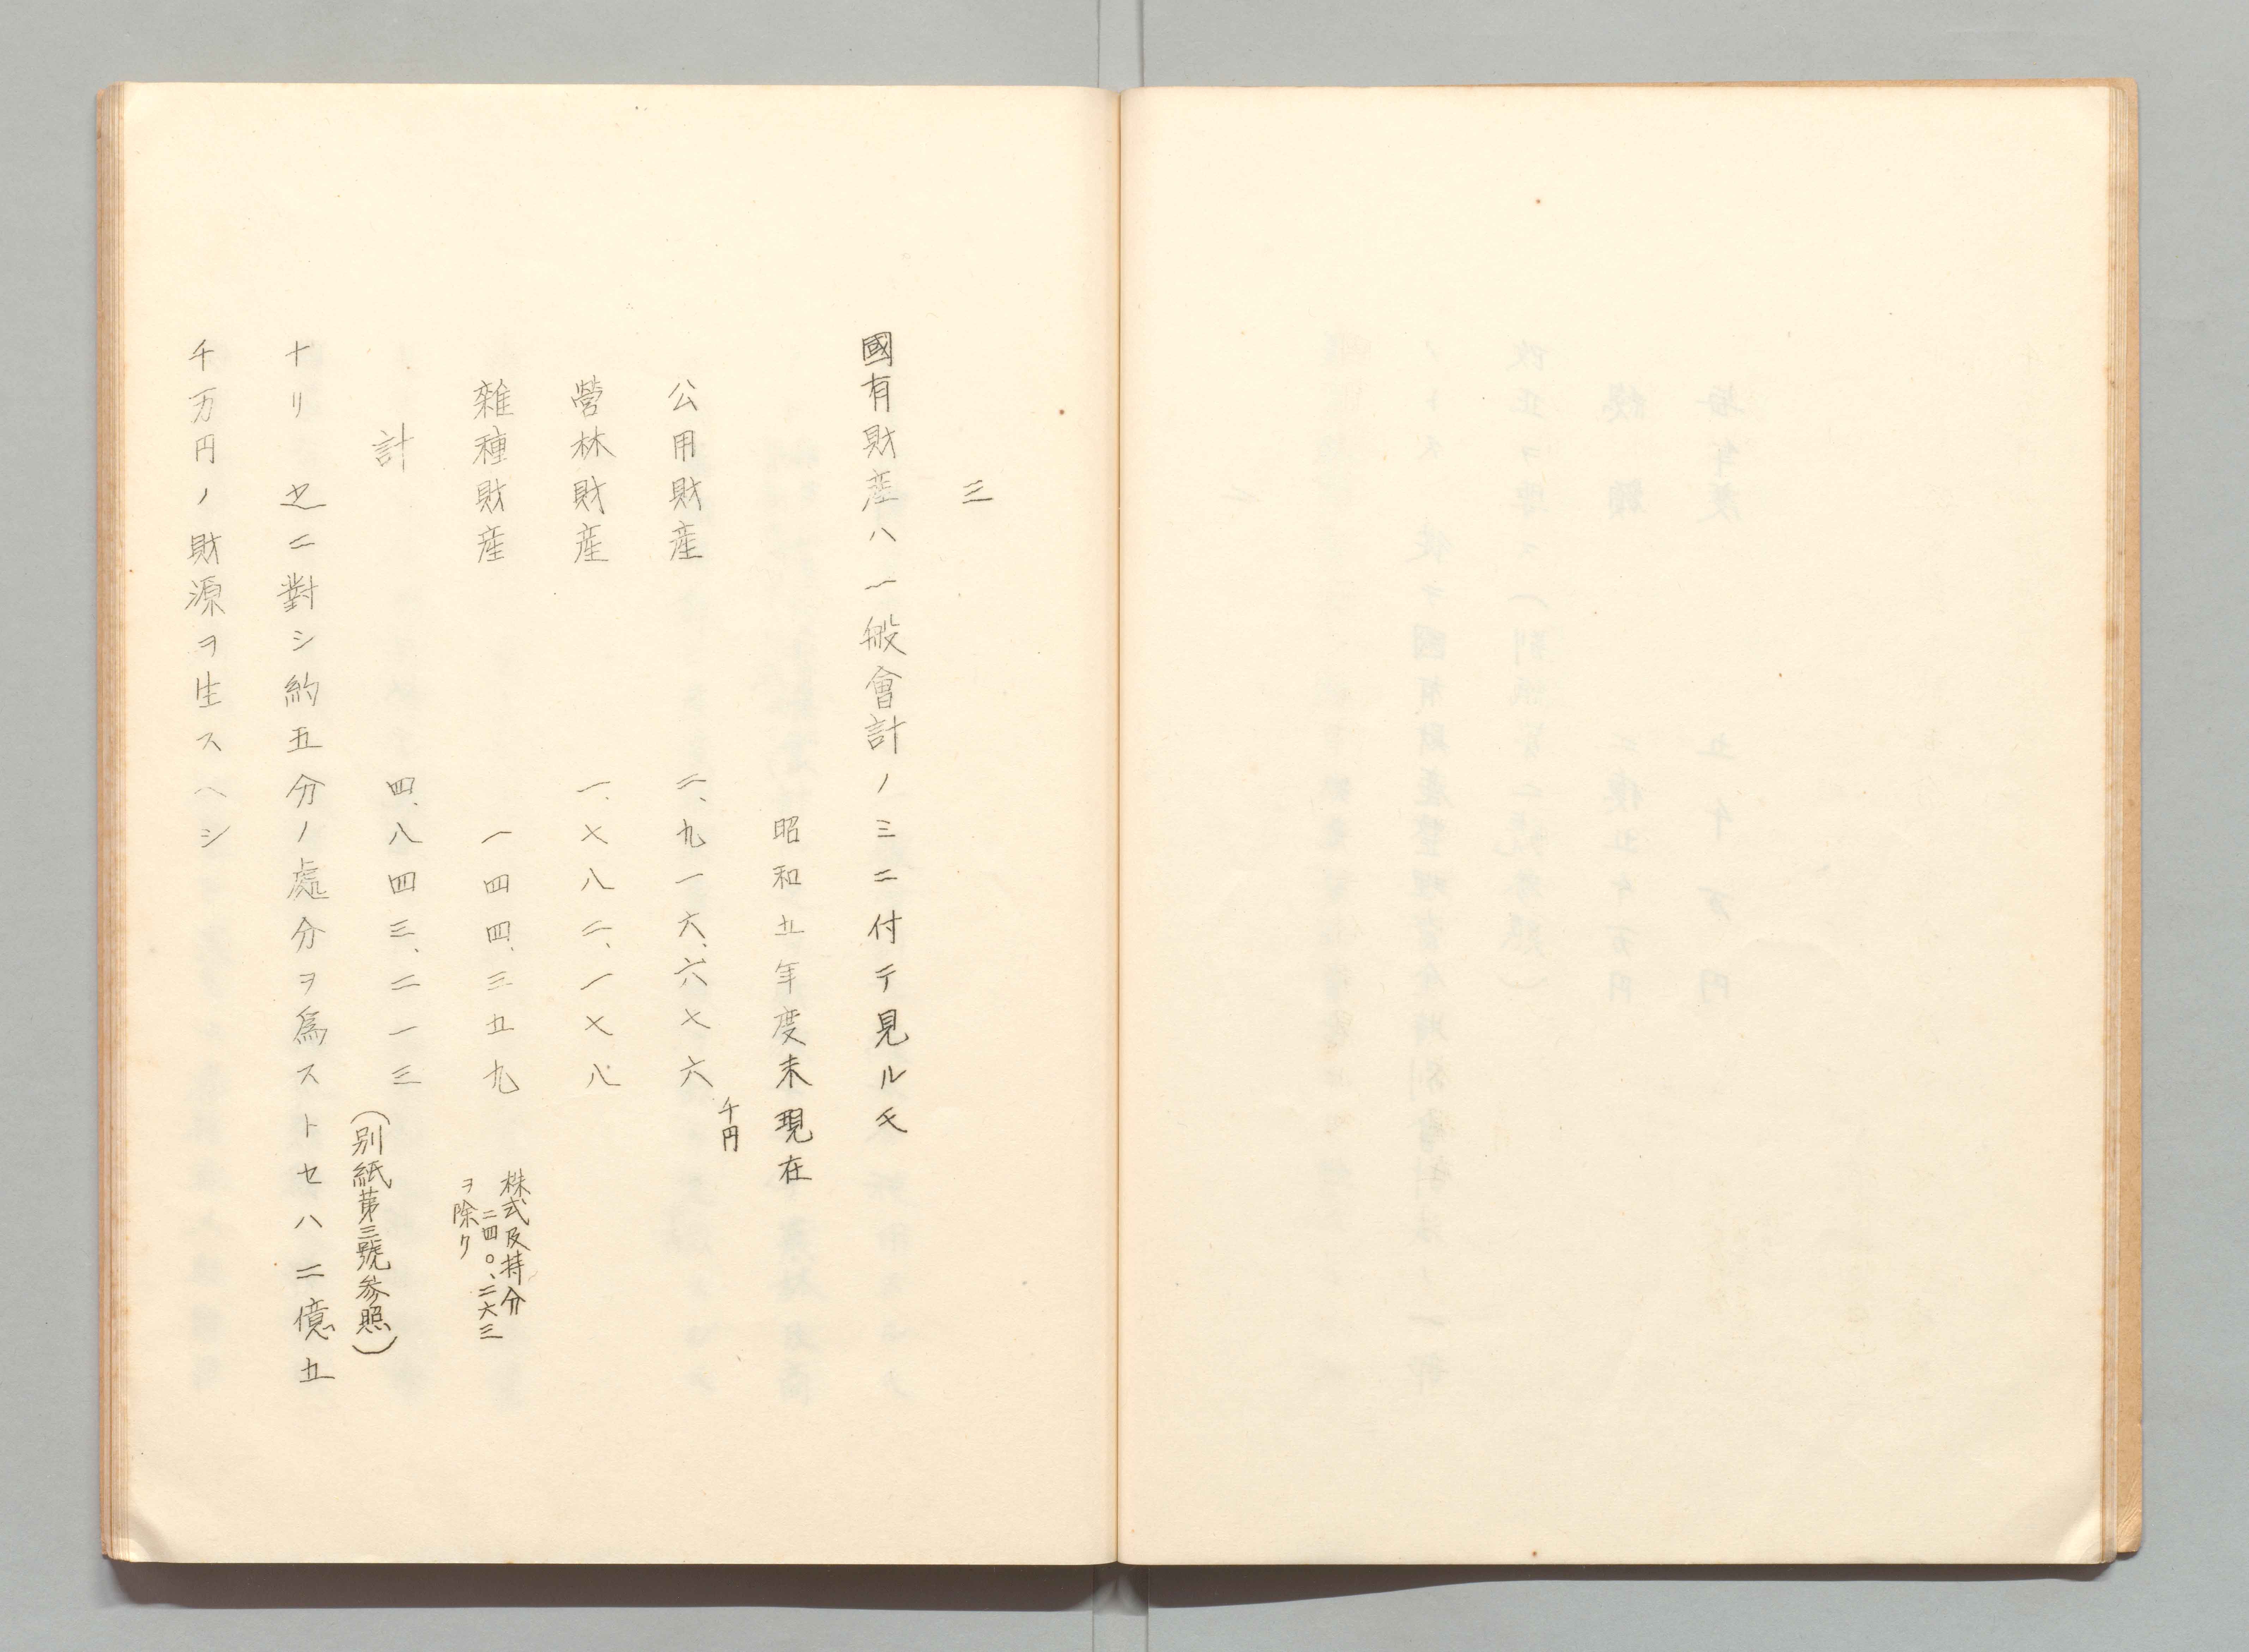 三
國有財産ハ一般會計ノミニ付テ見ルモ
昭和五年度末現在
千円
公用財産 二、九一六、六七六
營林財産 一、七八二、一七八
雜種財産 一四四、三五九
株式及持分
二四〇、二六三
ヲ除ク
計 四、八四三、二一三
（別紙第三號参照）
ナリ之ニ對シ約五分ノ處分ヲ爲ストセハ二億五
千万円ノ財源ヲ生スヘシ